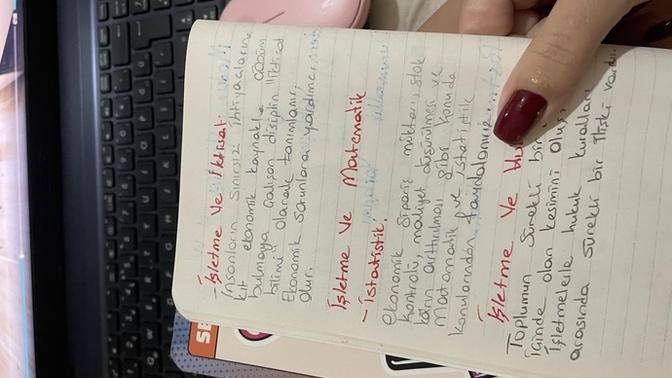 - İşletme ve İktisat:
İnsanların sınırsız ihtiyaçlarına
kıt ekonomik kaynakla çözüm
bulmaya çalışan disiplin iktisat
bilimi olarak tanımlanır.
Ekonomik sorunlara yardımcı
olur.
İşletme ve Matematik
- İstatistik:
ekonomik sipariş miktarı stok
kontrolü, maliyet düşürülmesi ve
karın arttırılması gibi konuda
Matematik ve istatistik
konularından faydalanılır
İşletme ve
Toplumun sürekli bir
içinde olan kesimini
İşletmelerle hukuk kuralları
arasında sürekli bir ilişki vardır.
SE